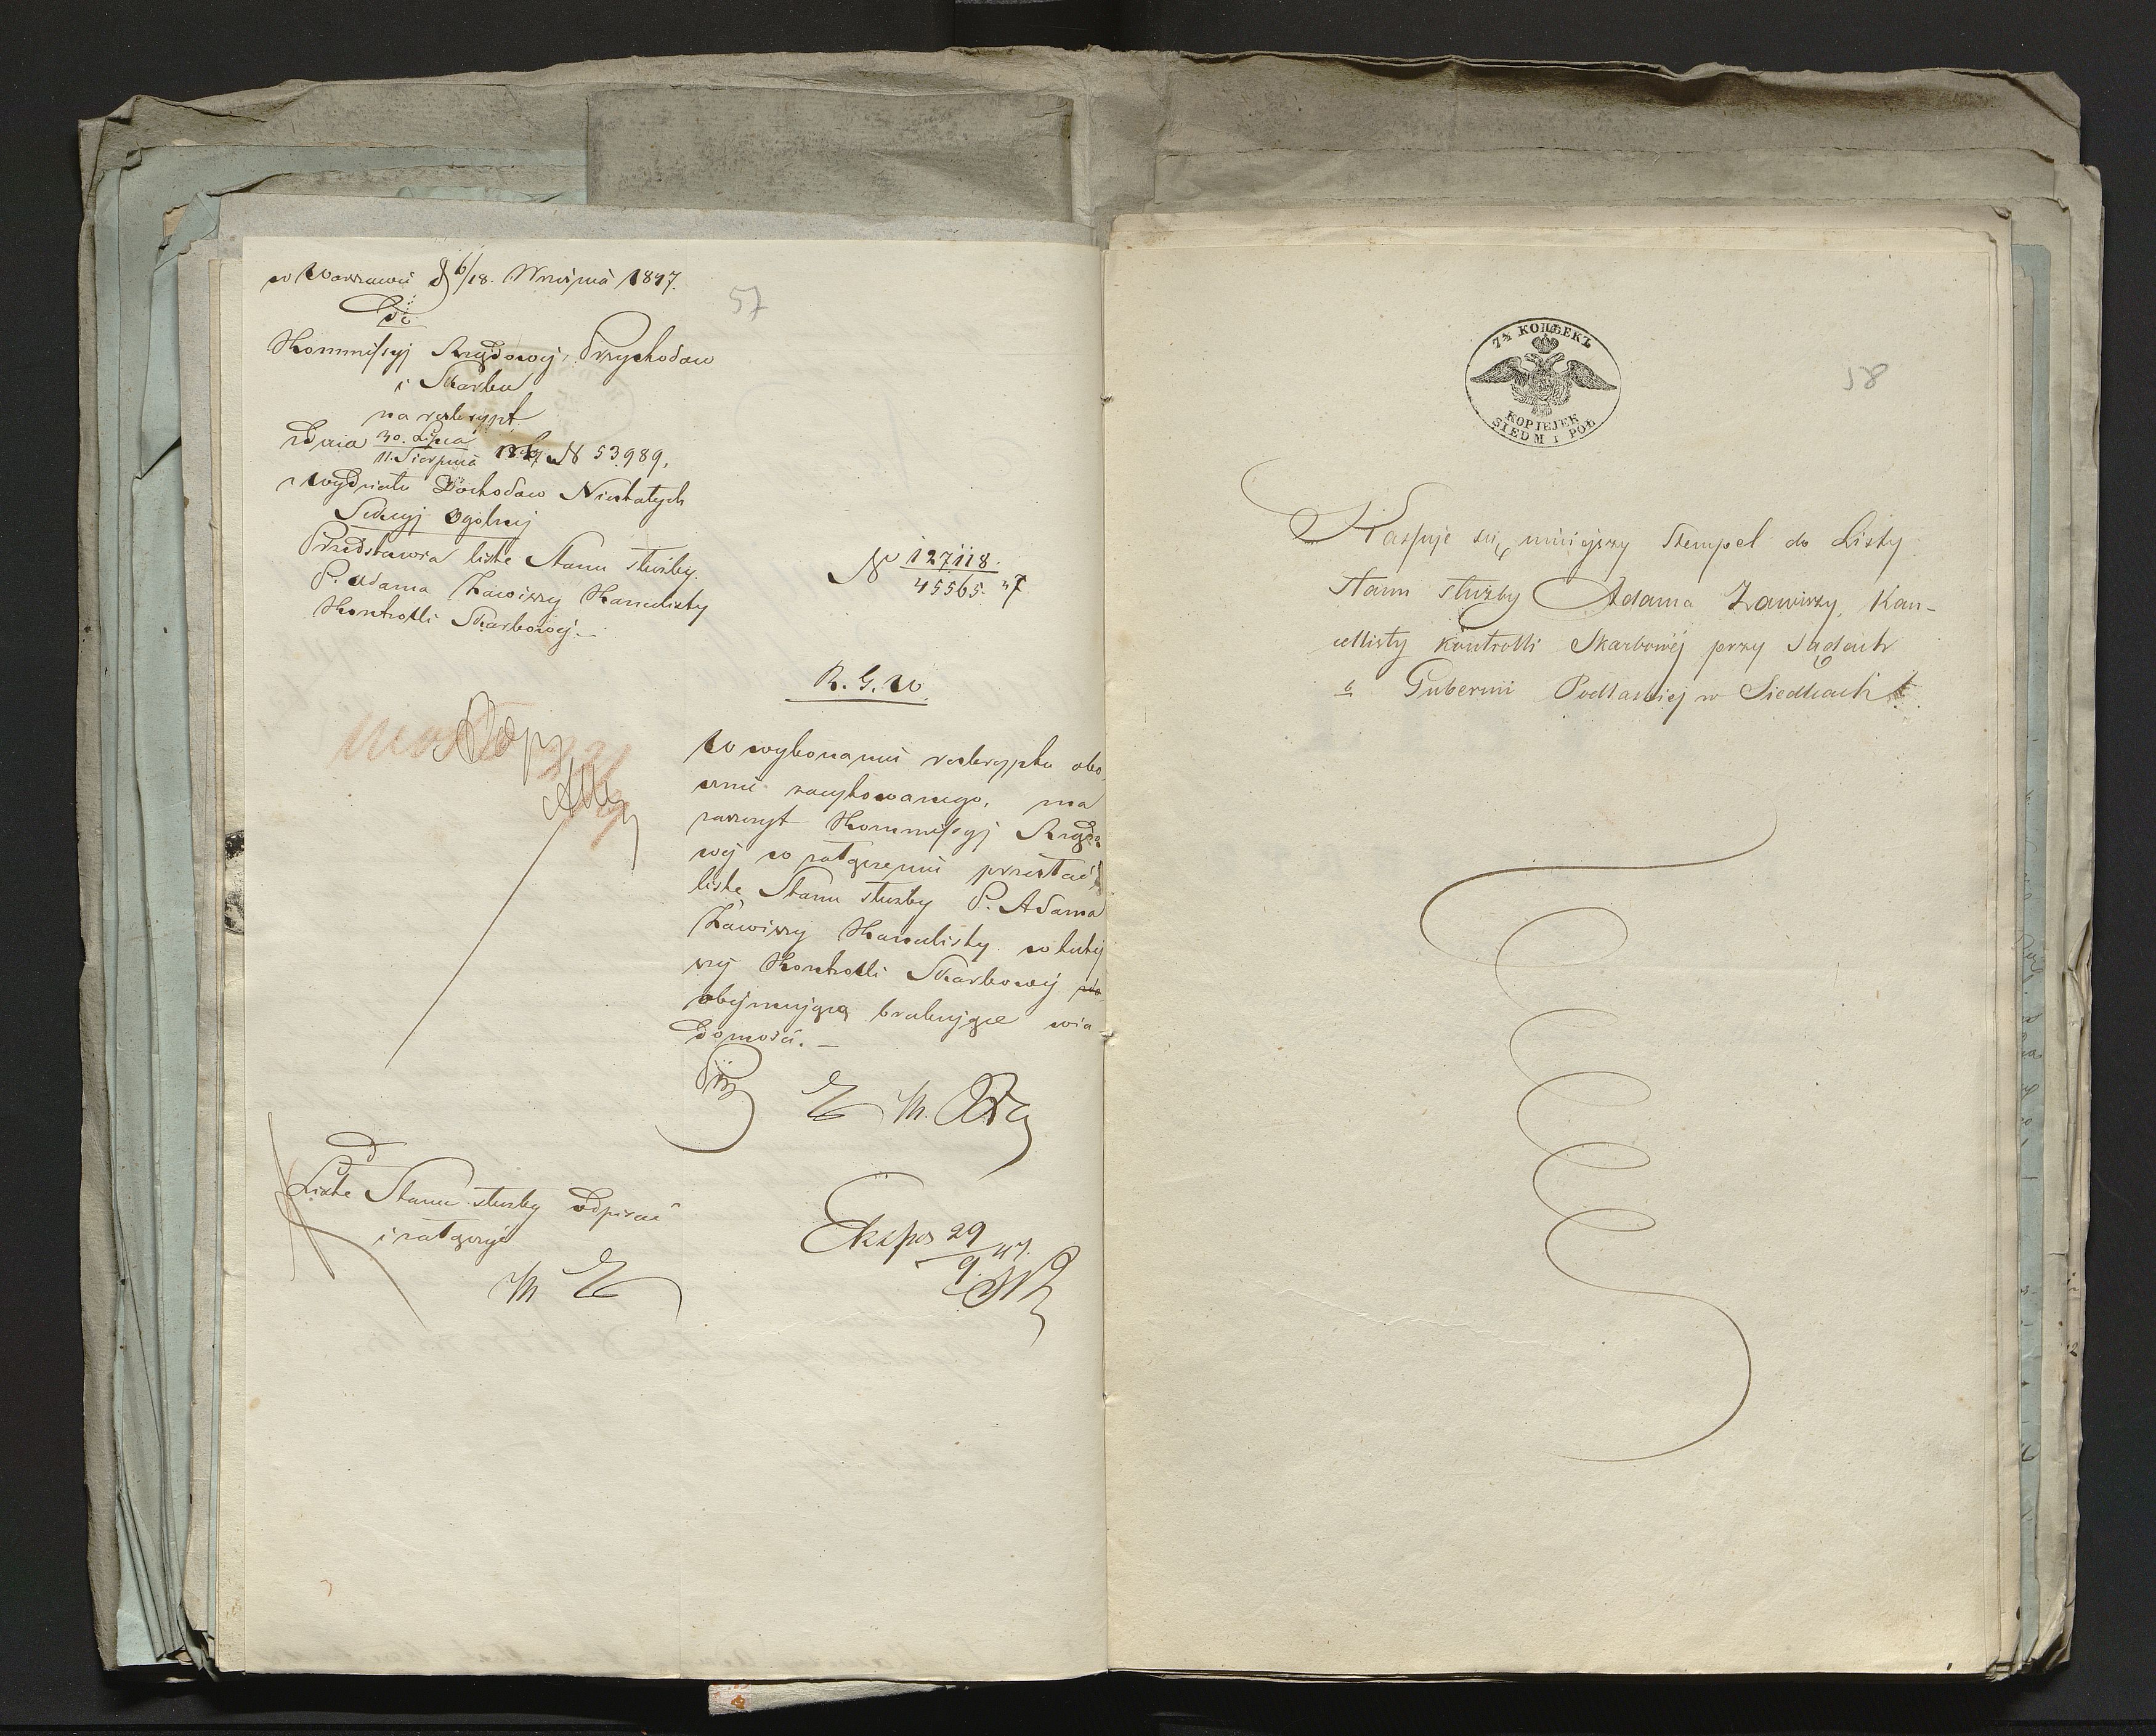 w Warszawie d 6/18. Września 1847.
57
Do
Kommissyi Rządowej Przychodow
i Skarbu
na reskrypt
z dnia 30. Lipca / 11. Sierpnia N 53989,
z Wydziału Dochodow Niestałych
Sekcyi Ogólnej
Przedstawia listę Stanu służby
P. Adama Zawiszy Kancelisty
Kontrolli Skarbowej.–
N 127118. / 45565. 47
R. G. W.
W wykonaniu reskryptu obo-
cznie zacytowanego, ma
zaszczyt Kommissyi Rządo-
wej w załączeniu przesłać
listę Stanu służby P. Adama
Zawiszy Kancelisty w tutej
szej Kontrolli Skarbowej
obejmującą brakujące wia-
domości. –
Listę Stanu służby odpisać
i załączyć
Ekspes 29/9 47.
7½ КОПѢЕКЪ
KOPIEJEK
SIEDM i PÓŁ
58
Kassuje się niniejszy Stempel do Listy
Stanu służby Adama Zawiszy, Kan-
cellisty Kontrolli Skarbowéj przy Sądach
b Gubernii Podlaskiej w Siedlcach